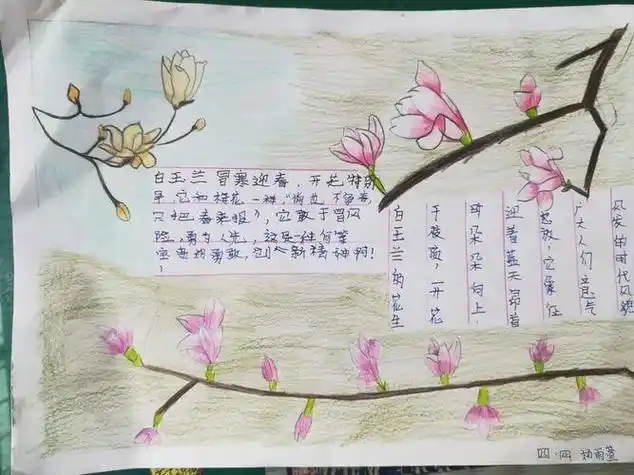 白玉兰冒寒迎春，开花特别
早，它和梅花一样，“俏也不争春，
只把春来报》，它敢于冒风
险，勇为人先，这是一种何等
勇敢，创新精神啊！
白玉兰的花生
于枝顶，开花
时朵朵向上，
迎着蓝天昂首
怒放，它像征
广大人们意气
风发的时代风貌
四·四 杨雨萱